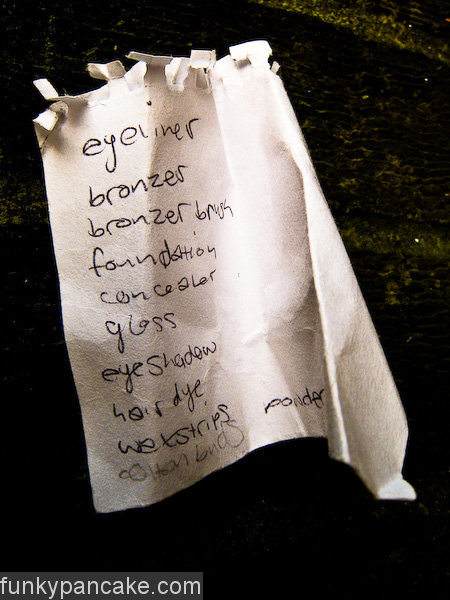 eyeliner
bronzer
bronzer brush
foundation
concealer
gloss
eyeshadow
hair dye
waxstrips powder
cotton buds
funkypancake.com